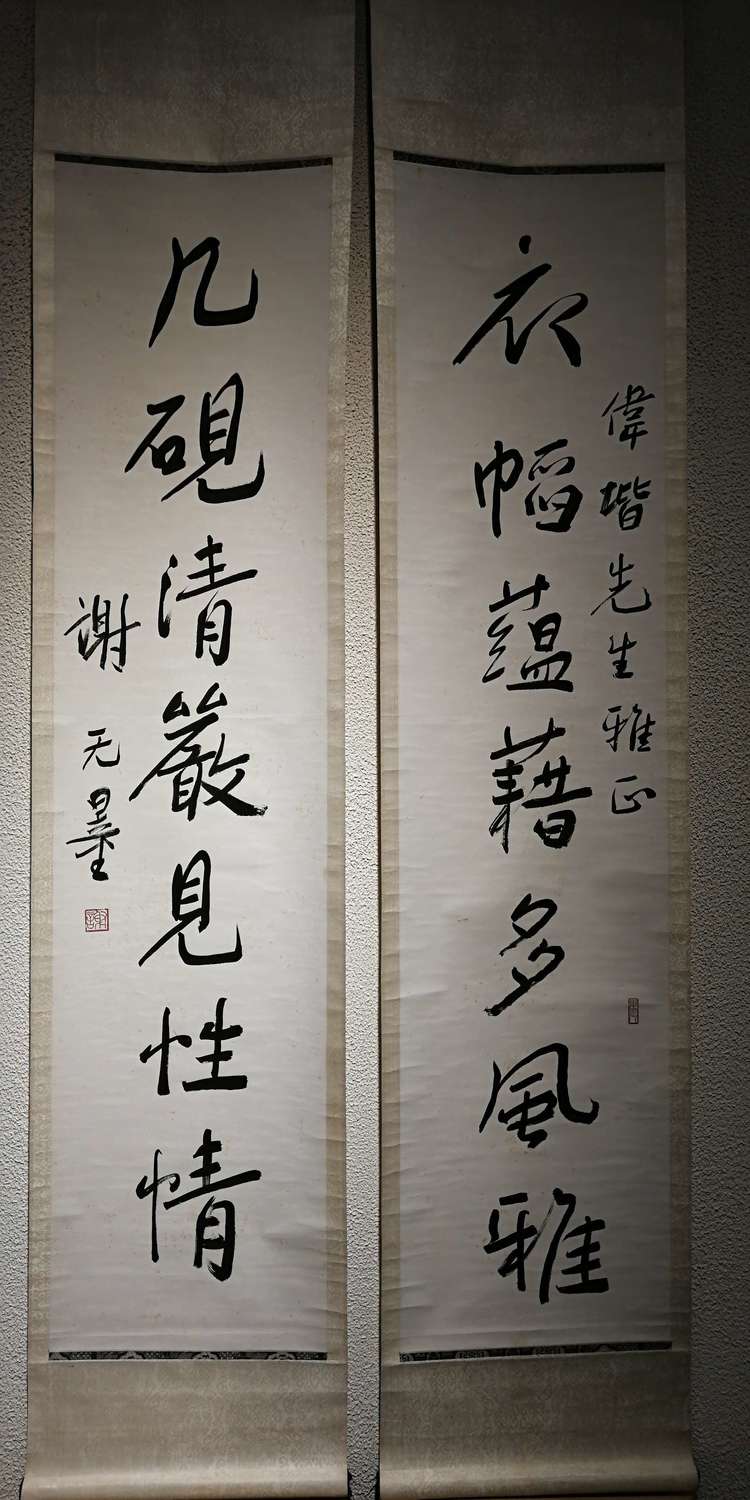 衣幍蕴藉多風雅
偉堦先生雅正
几硯清嚴見性情
谢无量